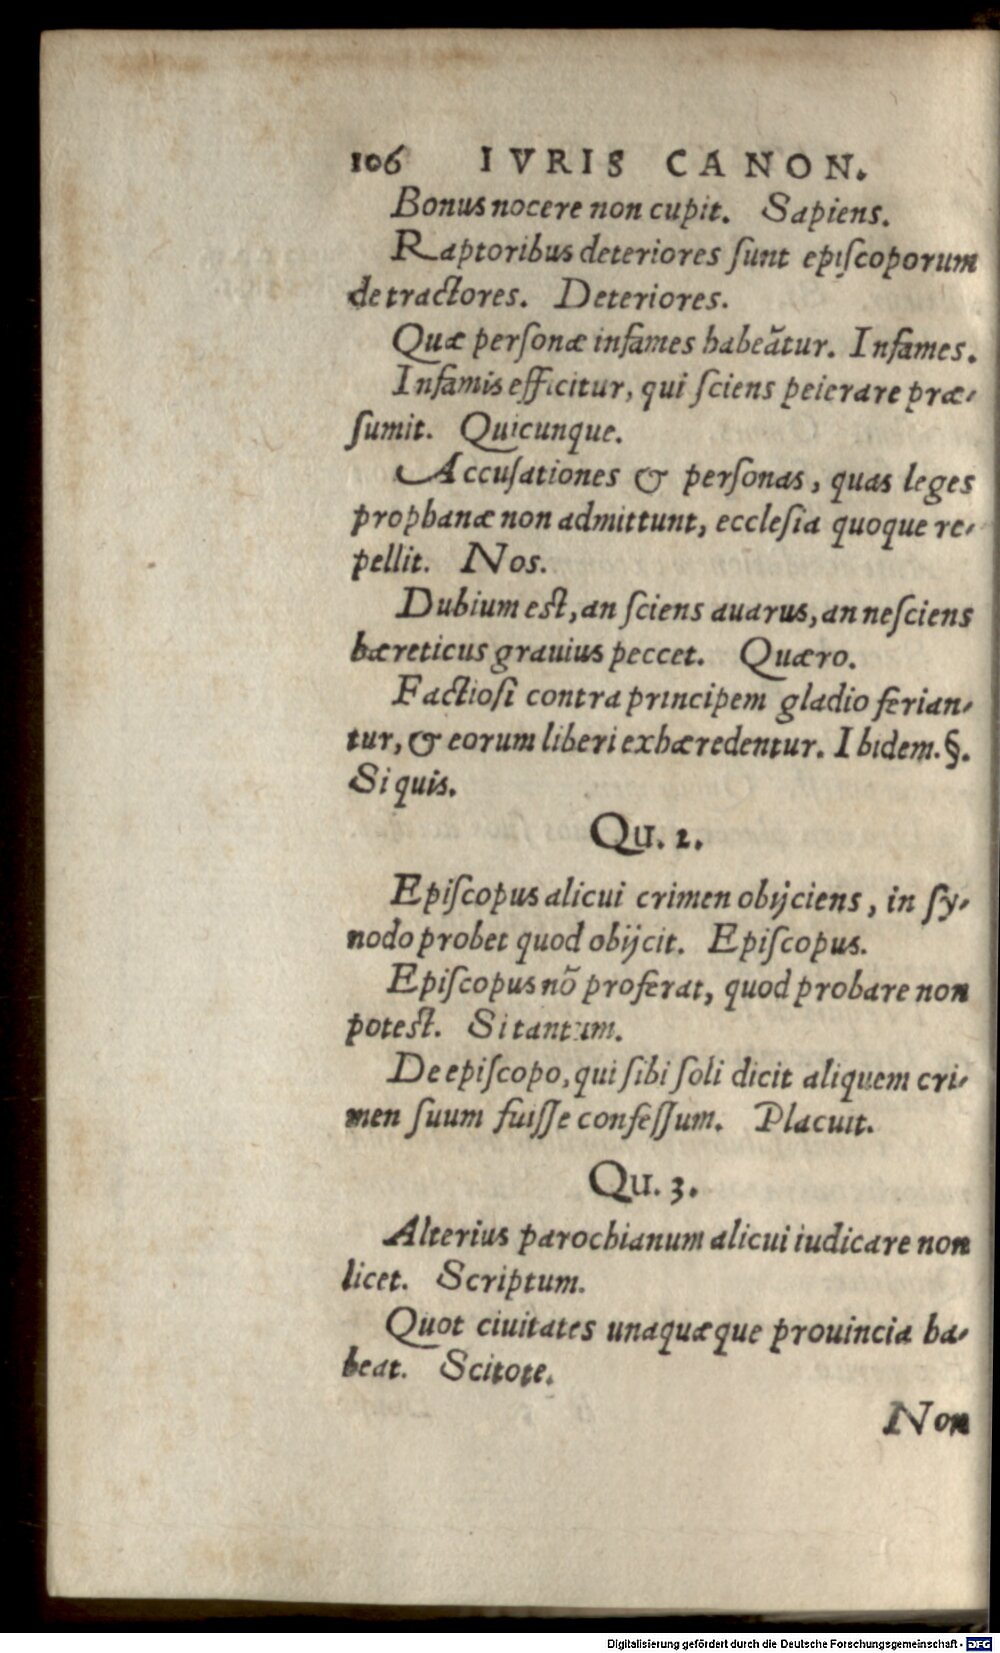 106 IVRIS CANON.
Bonus nocere non cupit. Sapiens.
Raptoribus deteriores ſunt epiſcoporum
detractores. Deteriores.
Quæ perſonæ infames habeãtur. Infames.
Infamis efficitur, qui ſciens peierare præ-
ſumit. Quicunque.
Accuſationes & perſonas, quas leges
prophanæ non admittunt, eccleſia quoque re-
pellit. Nos.
Dubium est, an ſciens auarus, an neſciens
hæreticus grauius peccet. Quæro.
Factioſi contra principem gladio ferian-
tur, & eorum liberi exhæredentur. Ibidem. §.
Si quis.
Qu. 2.
Epiſcopus alicui crimen obijciens, in ſy-
nodo probet quod obijcit. Epiſcopus.
Epiſcopus nõ proferat, quod probare non
potest. Si tantum.
De epiſcopo, qui ſibi ſoli dicit aliquem cri-
men ſuum fuiſſe confeſſum. Placuit.
Qu. 3.
Alterius parochianum alicui iudicare non
licet. Scriptum.
Quot ciuitates unaquæque prouincia ha-
beat. Scitote.
Non
Digitalisierung gefördert durch die Deutsche Forschungsgemeinschaft - DFG